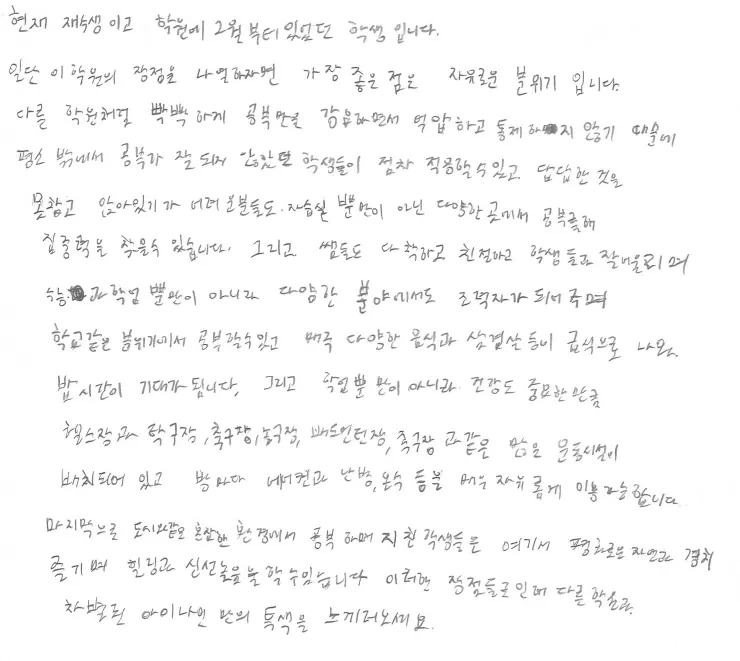 현재 재수생이고 학원에 2월부터 있었던 학생입니다.
일단 이 학원의 장점을 나열하자면 가장 좋은 점은 자유로운 분위기 입니다.
다른 학원처럼 빡빡하게 공부만을 강요하면서 억압하고 통제하지 않기 때문에
평소 밖에서 공부가 잘 되지 않았던 학생들이 점차 적응할 수 있고, 답답한 것을
못참고 앉아있기가 어려운분들도 자습실 뿐만이 아닌 다양한 곳에서 공부로해
집중력을 찾을수 있습니다. 그리고 쌤들도 다 착하고 친절하고 학생들과 잘어울리며
수능과 학업 뿐만이 아니라 다양한 분야에서도 조력자가 되어주며
학교같은 분위기에서 공부할수있고 매주 다양한 음식과 삼겹살 등이 급식으로 나와,
밥시간이 기대가 됩니다. 그리고 학업뿐만이 아니라 건강도 중요한만큼
헬스장과 탁구장, 축구장, 농구장, 배드민턴장, 족구장과 같은 많은 운동시설이
배치되어 있고 방마다 에어컨과 난방, 온수 등을 매우 자유롭게 이용가능합니다
마지막으로 도시와같은 혼잡한 환경에서 공부하며 지친 학생들은 여기서 평화로운 자연과 경치
즐기며 힐링과 신선놀음을 할 수 있습니다 이러한 장점들로인해 다른 학원과
차별된 아이나앤 만의 특색을 느끼러오세요.